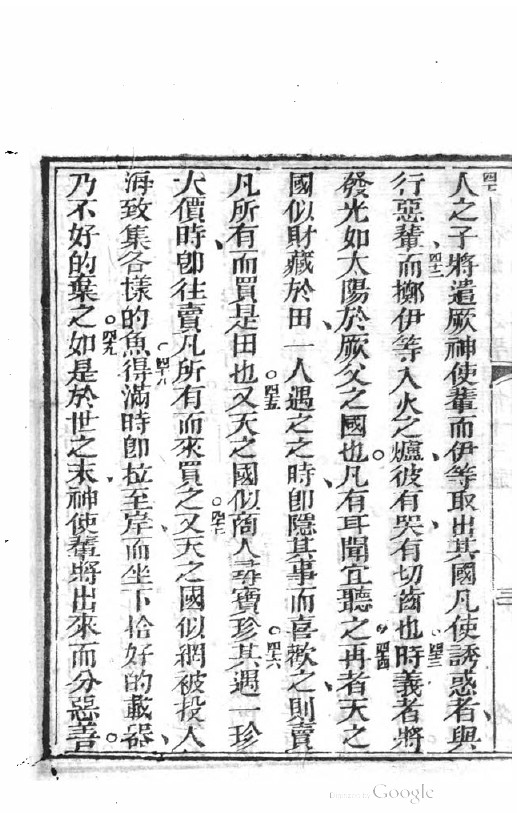 四一
人之子將遣厥神使輩而伊等取出其國凡使誘惑者與
行惡輩四二而擲伊等入火之爐彼有哭有切齒也四三時義者將
發光如太陽於厥父之國也凡有耳聞宜聽之四四再者天之
國似財藏於田一人遇之之時卽隱其事而喜歡之則賣
凡所有而買是田也四五又天之國似商人尋寶珍四六其遇一珍
大價時卽往賣凡所有而來買之四七又天之國似網被投入
海致集各樣的魚四八得滿時卽拉至岸而坐下拾好的載器
乃不好的棄之四九如是於世之末神使輩將出來而分惡善
三
Digitized by Google